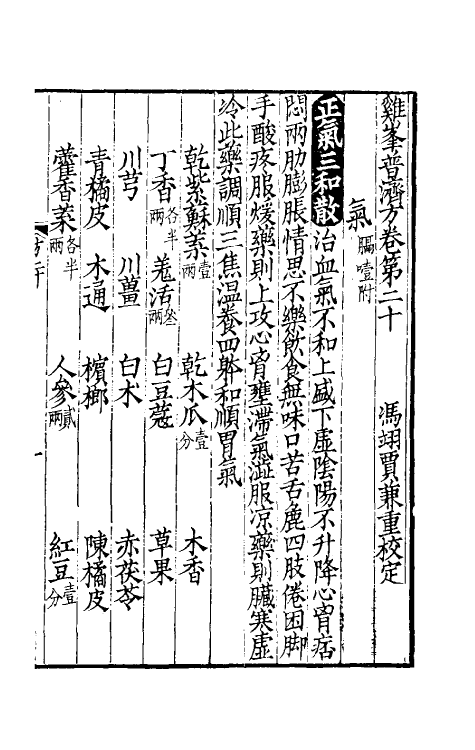 雞峯普濟方卷第二十　馮翊賈兼重校定
氣 膈噎附
正氣三和散 治血氣不和上盛下虛陰陽不升降心胷痞
悶兩肋膨脹情思不樂飲食無味口苦舌麁四肢倦困脚
手酸疼服煖藥則上攻心胷壅滯氣澁服凉藥則臟寒虛
冷此藥調順三焦温養四躰和順胃氣
乾紫蘇葉壹兩　乾木瓜壹分　木香
丁香各半兩　羗活叁兩　白豆蔻　草果
川芎　川薑　白术　赤茯苓
青橘皮　木通　檳榔　陳橘皮
藿香葉各半兩　人參貳兩　紅豆壹分